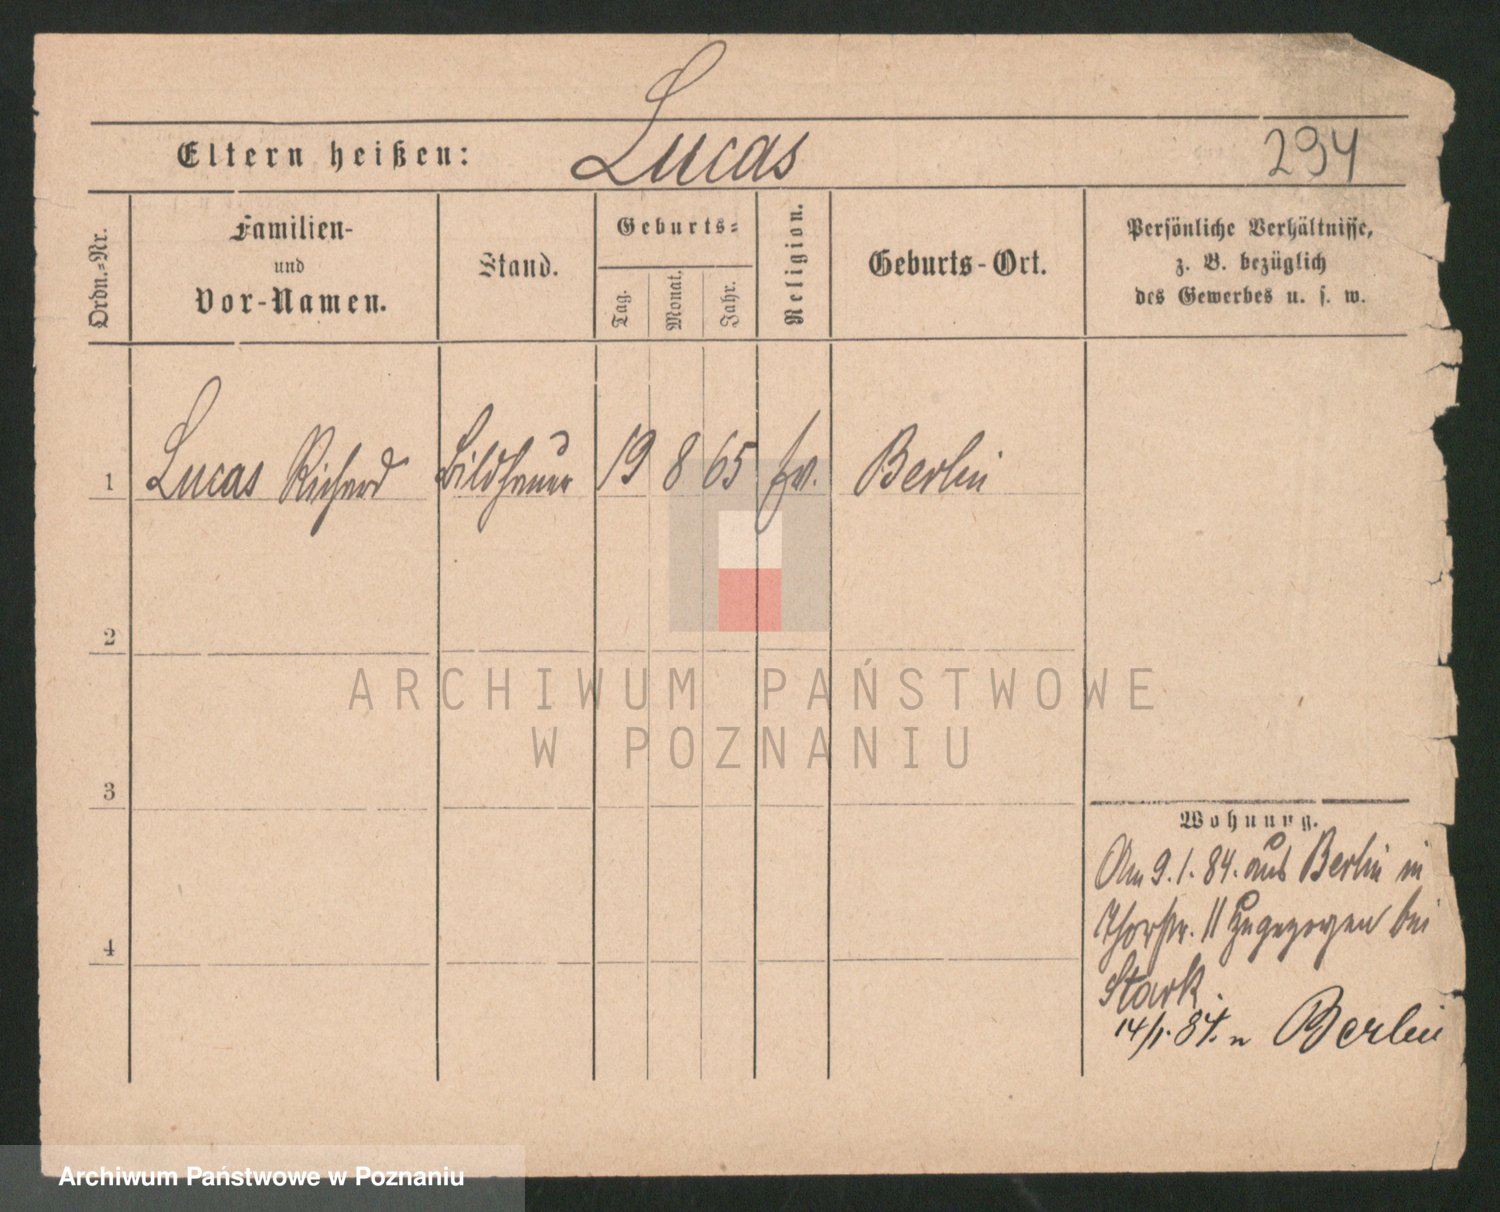 Lucas
Eltern heißen:
294
Ordn.=Nr.
Familien-
und
Vor-Namen.
Stand.
Geburts=
Tag.
Monat.
Jahr.
Religion.
Geburts-Ort.
Persönliche Verhältnisse,
z. B. bezüglich
des Gewerbes u. s. w.
1 Lucas Richard Bildhauer 19 8 65 ev. Berlin
2
3
4
Wohnung.
Am 9.1.84. aus Berlin in
Thorstr. 11 zugezogen bei
Stark.
14/1.84. n Berlin
ARCHIWUM PAŃSTWOWE
W POZNANIU
Archiwum Państwowe w Poznaniu